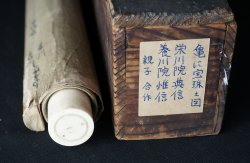 亀に宝珠之図
栄川院典信
養川院惟信
親子合作